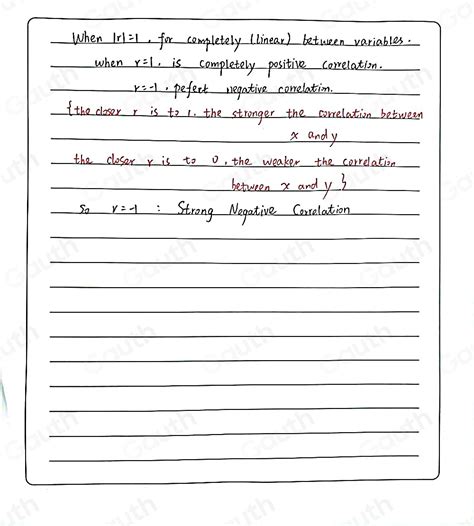 When |r|=1, for completely (linear) between variables.
when r=1. is completely positive correlation.
r=-1, pefert negative correlation.
{the closer r is to 1. the stronger the correlation between
x and y
the closer r is to 0, the weaker the correlation
between x and y}
So r=-1 : Strong Negative Correlation